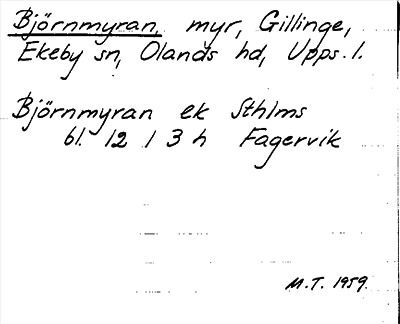 Björnmyran, myr, Gillinge,
Ekeby sn, Olands hd, Upps. l.
Björnmyran ek Sthlms
bl. 12 1 3 h Fagervik
M.T. 1959.